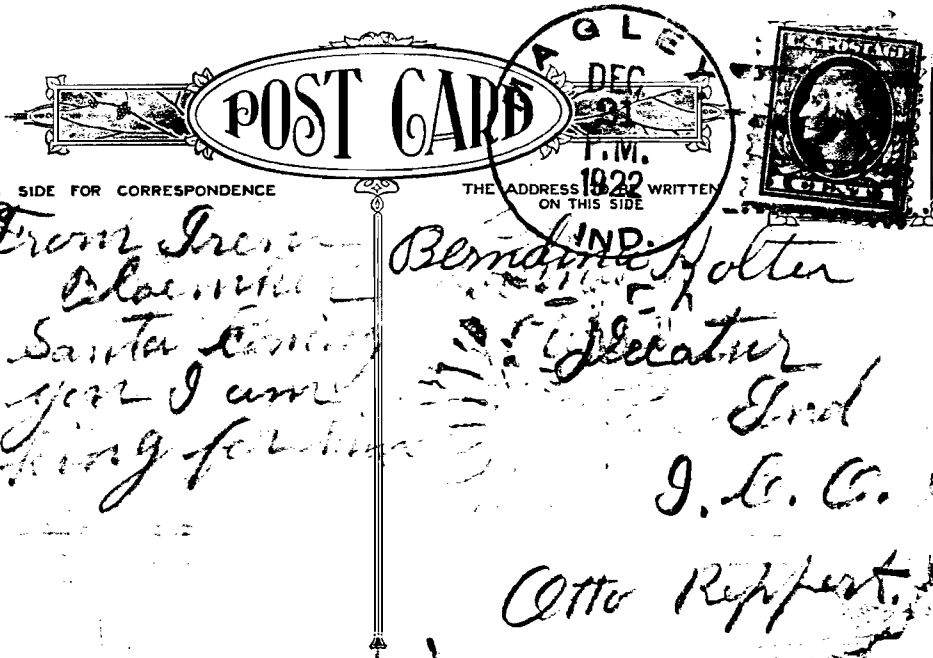 POST CARD
AGLEY
DEC
21
P.M.
1922
IND.
U.S. POSTAGE
1 CENT
SIDE FOR CORRESPONDENCE
THE ADDRESS TO BE WRITTEN
ON THIS SIDE
From Irene
Santa Coming
you I am
king for him
Berndina Holter
Decatur
Ind
I. C. C.
Otto Reppert.